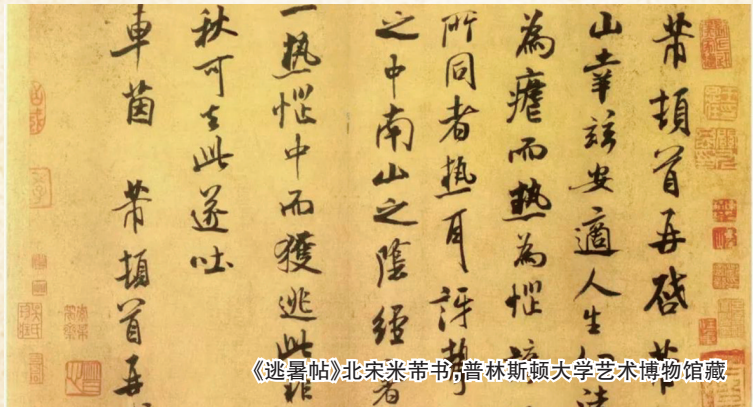 芾頓首再啓芾
山幸兹安適人生
為瘧而熱為惱
所同者熱耳訝摯
之中南山之陰經
一熱惱中而獲逃此非
秋可去此遂吐
車茵 芾頓首再
《逃暑帖》北宋米芾书,普林斯顿大学艺术博物馆藏